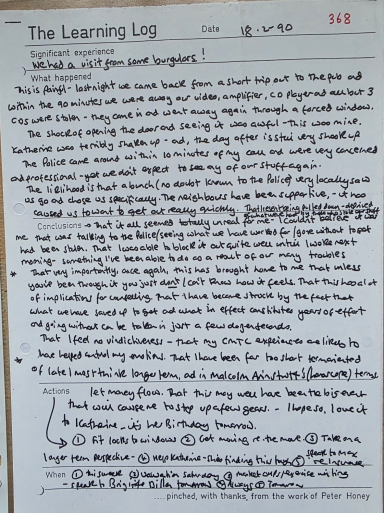 368
The Learning Log Date 18.2.90
Significant experience
We had a visit from some burgulars!
What happened
This is painful - last night we came back from a short trip out to the pub and
within the 90 minutes we were away our video, amplifier, CD player and all but 3
CDs were stolen - they came in and went away again through a forced window.
The shock of opening the door and seeing it was awful - this was mine.
Katherine was terribly shaken up - and, the day after is still very shook up
The Police came around within 10 minutes of my call and were very concerned
and professional - yet we don't expect to see any of our stuff again.
The likelihood is that a bunch (no doubt known to the Police) very locally saw
us go and chose us specifically. The neighbours have been supportive - it has
caused us to want to get out really quickly.
Conclusions → That it all seemed totally unreal to me - I couldn't believe it was
me that was talking to the Police/seeing what we have worked for/gone without to get
had been stolen. That I was able to block it out quite well until I woke next
morning - something I've been able to do as a result of our many troubles
* That very importantly, once again, this has brought home to me that unless
you've been through it you just don't/can't know how it feels. That this has a lot
of implications for counselling, that I have become struck by the fact that
what we have saved up to get and what in effect constitutes years of effort
and going without can be taken in just a few seconds.
That I feel no vindictiveness - that my experiences are likely to
have helped control my emotions. * That I have been far too short
of late I must think longer term, and in Malcolm terms
Actions let money flow. That this may well have been the
that will cause me to step up a few gears. - I hope so, I owe it
to Katharine - it's her Birthday tomorrow.
→ ① Fit locks to windows ② Get moving re the move ③ Take on a
longer term perspective - ④ Help Katharine - she's finding this tough ⑤ speak to Max
re insurance
When ① this week ② Saturday ③
- speak to tomorrow ④ Always ⑤ Tomorrow
....pinched, with thanks, from the work of Peter Honey